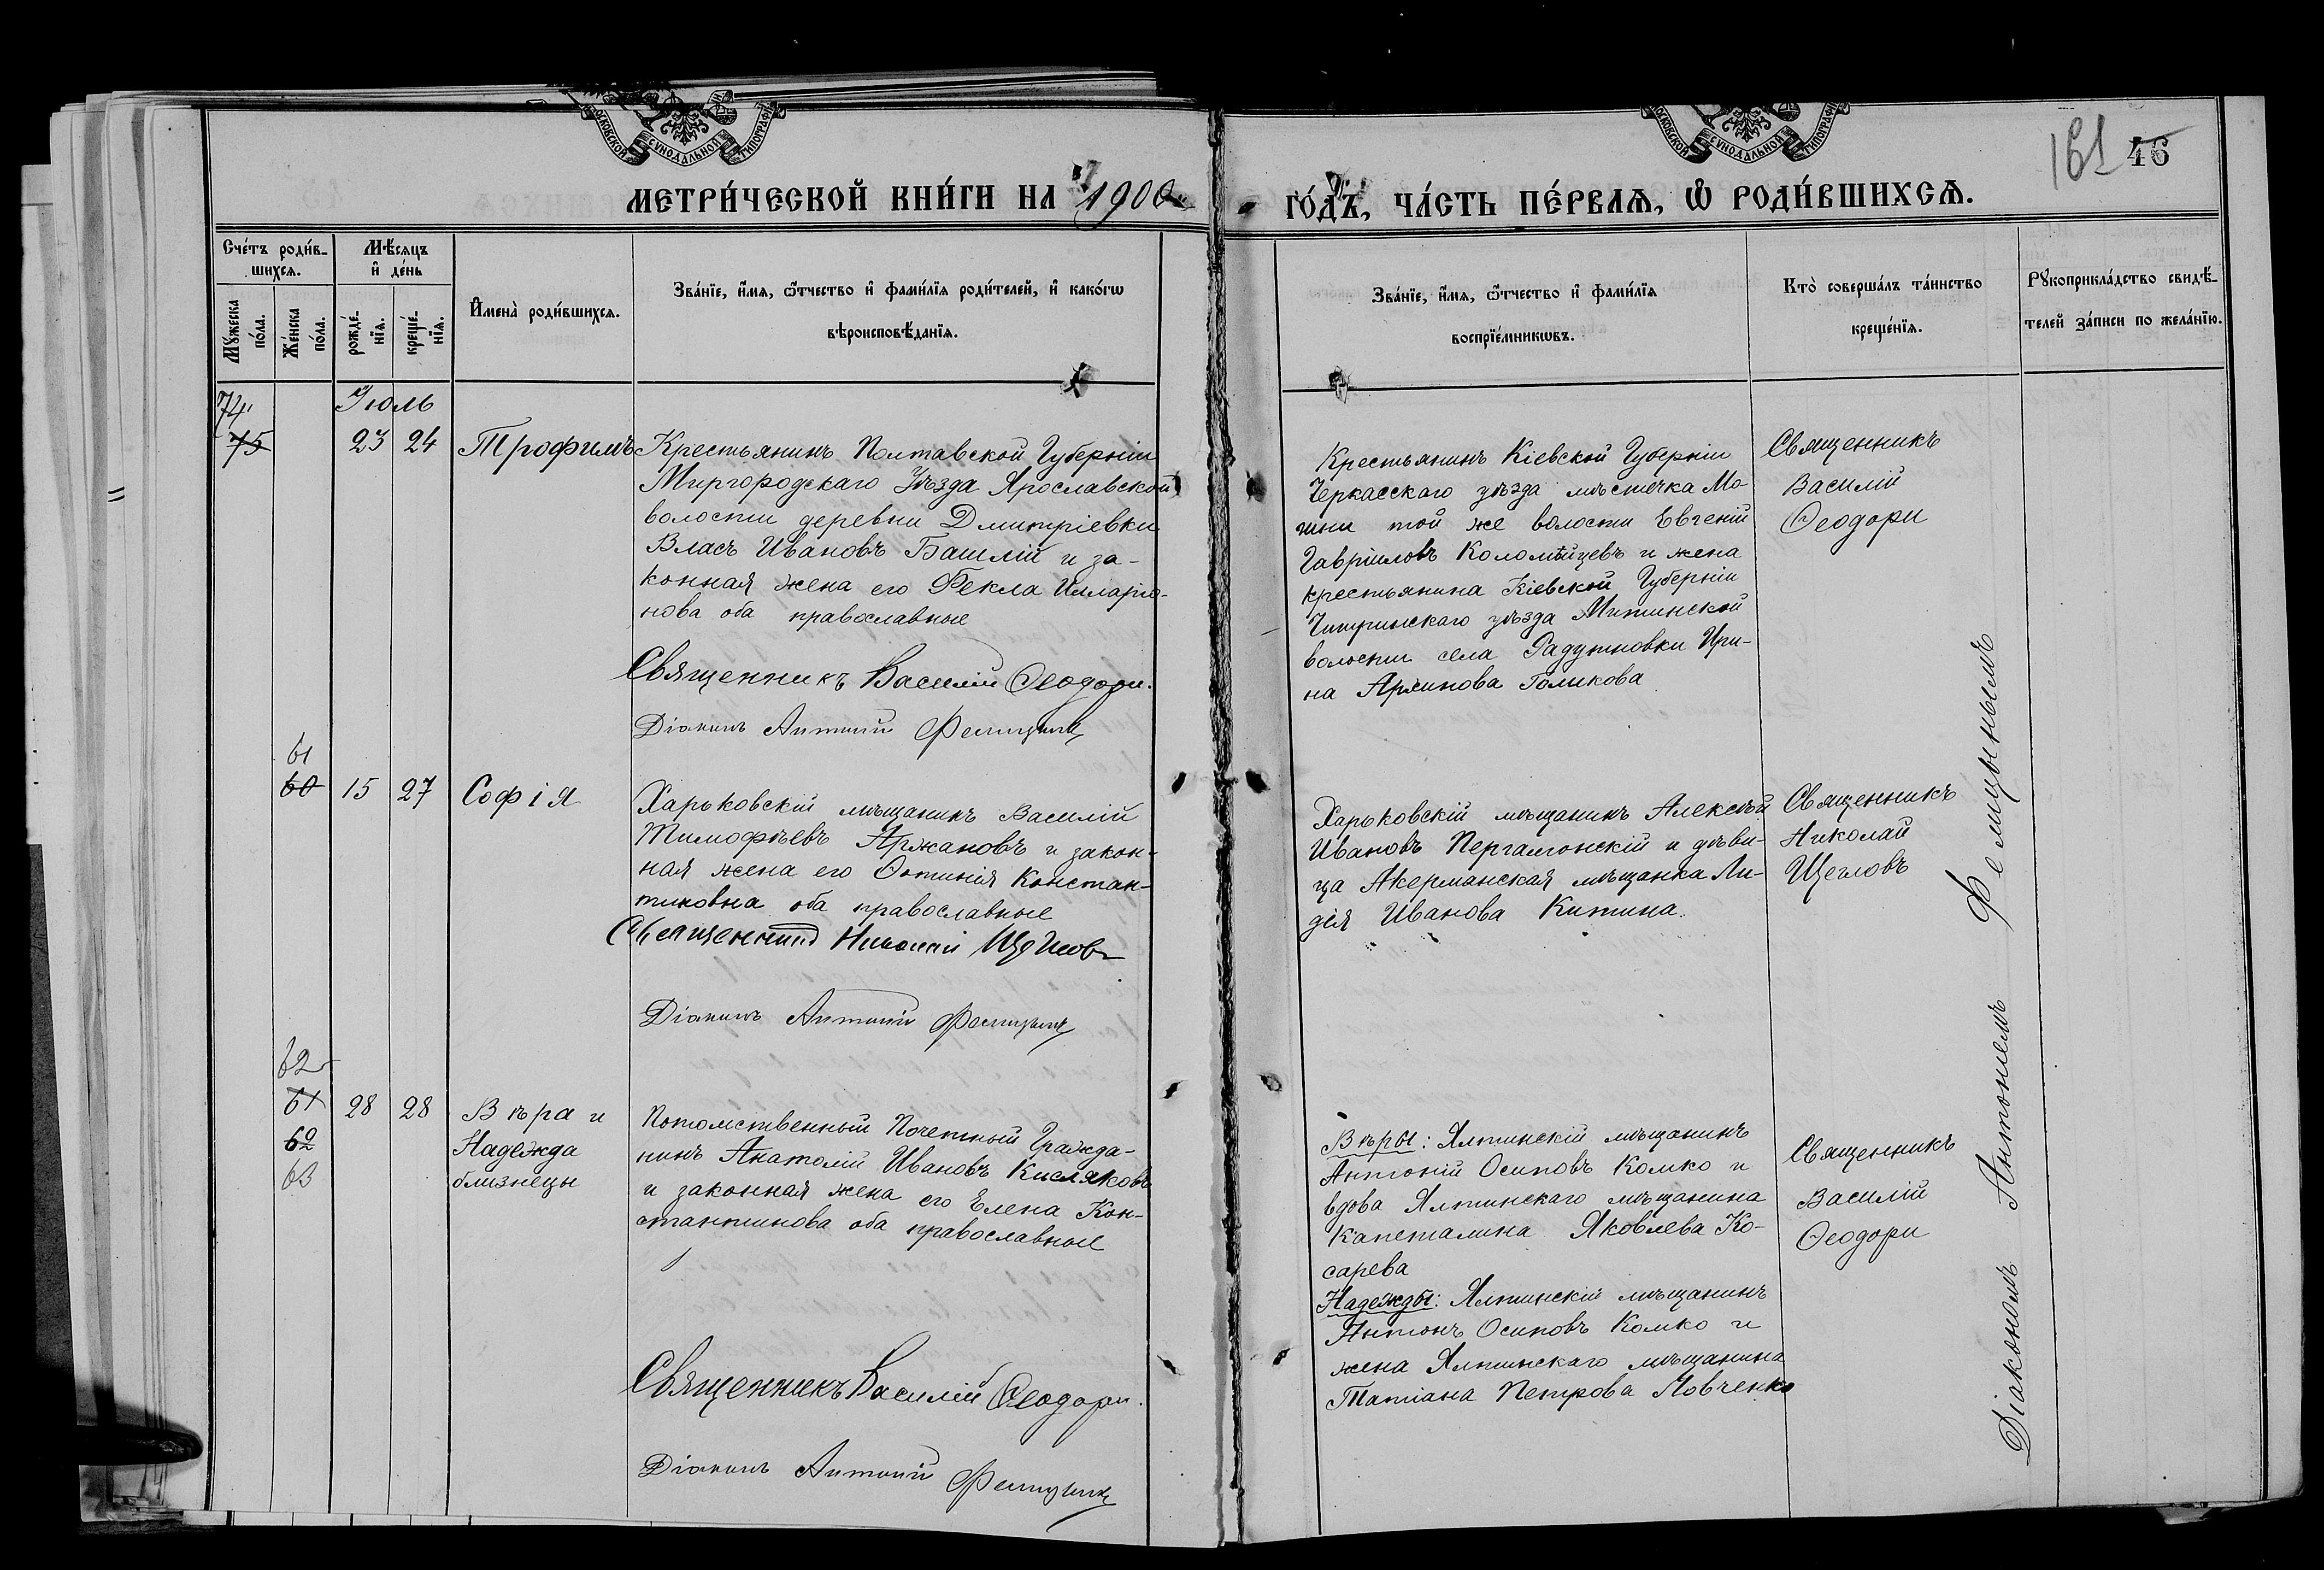 МОСКОВСКОЙ СѴНОДАЛЬНОЙ ТИПОГРАФІИ
МОСКОВСКОЙ СѴНОДАЛЬНОЙ ТИПОГРАФІИ
161 46
МЕТРИ́ЧЕСКОЙ КНИ́ГИ НА 1900
ГО́ДЪ, ЧА́СТЬ ПЕ́РВАЯ, Ѡ РОДИ́ВШИХСЯ.
Сче́тъ роди́в-
шихся.
Мꙋжеска по́ла.
Же́нска по́ла.
Мѣ́сяцъ и де́нь
рожде́-нїя.
креще́-нїя.
Имена̀ роди́вшихся.
Зва́нїе, и́мя, ѻ́тчество и фами́лїя роди́телей, и како́гѡ
вѣроисповѣ́данїя.
Зва́нїе, и́мя, ѻ́тчество и фами́лїя
воспрїе́мникѡвъ.
Кто̀ соверша́лъ та́инство
креще́нїя.
Рꙋкоприкла́дство свидѣ́-
телей за́писи по жела́нїю.
Іюль
74
75 23 24 Трофимъ
Крестьянинъ Полтавской Губерніи
Миргородскаго Уѣзда Ярославской
волости деревни Дмитріевки
Власъ Ивановъ Башлій и за-
конная жена его Фекла Илларіо-
нова оба православные
Священникъ Василій Ѳеодори.
Діаконъ Антоній Фемицынъ
Крестьянинъ Кіевской Губерніи
Черкасскаго уѣзда мѣстечка Мо-
шни той же волости Евгеній
Гавріиловъ Коломѣйцевъ и жена
крестьянина Кіевской Губерніи
Чигиринскаго уѣзда
волости села Ири-
на Голикова
Священникъ
Василій
Ѳеодори
61
60 15 27 Софія
Харьковскій мѣщанинъ Василій
Тимофѣевъ Аржановъ и закон-
ная жена его Фотинія Констан-
тиновна оба православные
Священникъ Николай Щегловъ
Діаконъ Антоній Фемицынъ
Харьковскій мѣщанинъ Алексѣй
Ивановъ Пергамонскій и дѣви-
ца Акерманская мѣщанка Ли-
дія Иванова Китина.
Священникъ
Николай
Щегловъ
62
61 28 28 Вѣра и
62 Надежда
63 близнецы
Потомственный Почетный Гражда-
нинъ Анатолій Ивановъ Кисляковъ
и законная жена его Елена Кон-
стантинова оба православные
Священникъ Василій Ѳеодори.
Діаконъ Антоній Фемицынъ
Вѣры: Ялтинскій мѣщанинъ
Антоній Осиповъ Комко и
вдова Ялтинскаго мѣщанина
Капеталина Яковлева Ко-
сарева
Надежды: Ялтинскій мѣщанинъ
Антонъ Осиповъ Комко и
жена Ялтинскаго мѣщанина
Татіана Петрова Ловченко
Священникъ
Василій
Ѳеодори
Діакономъ Антоніемъ Фемицынымъ